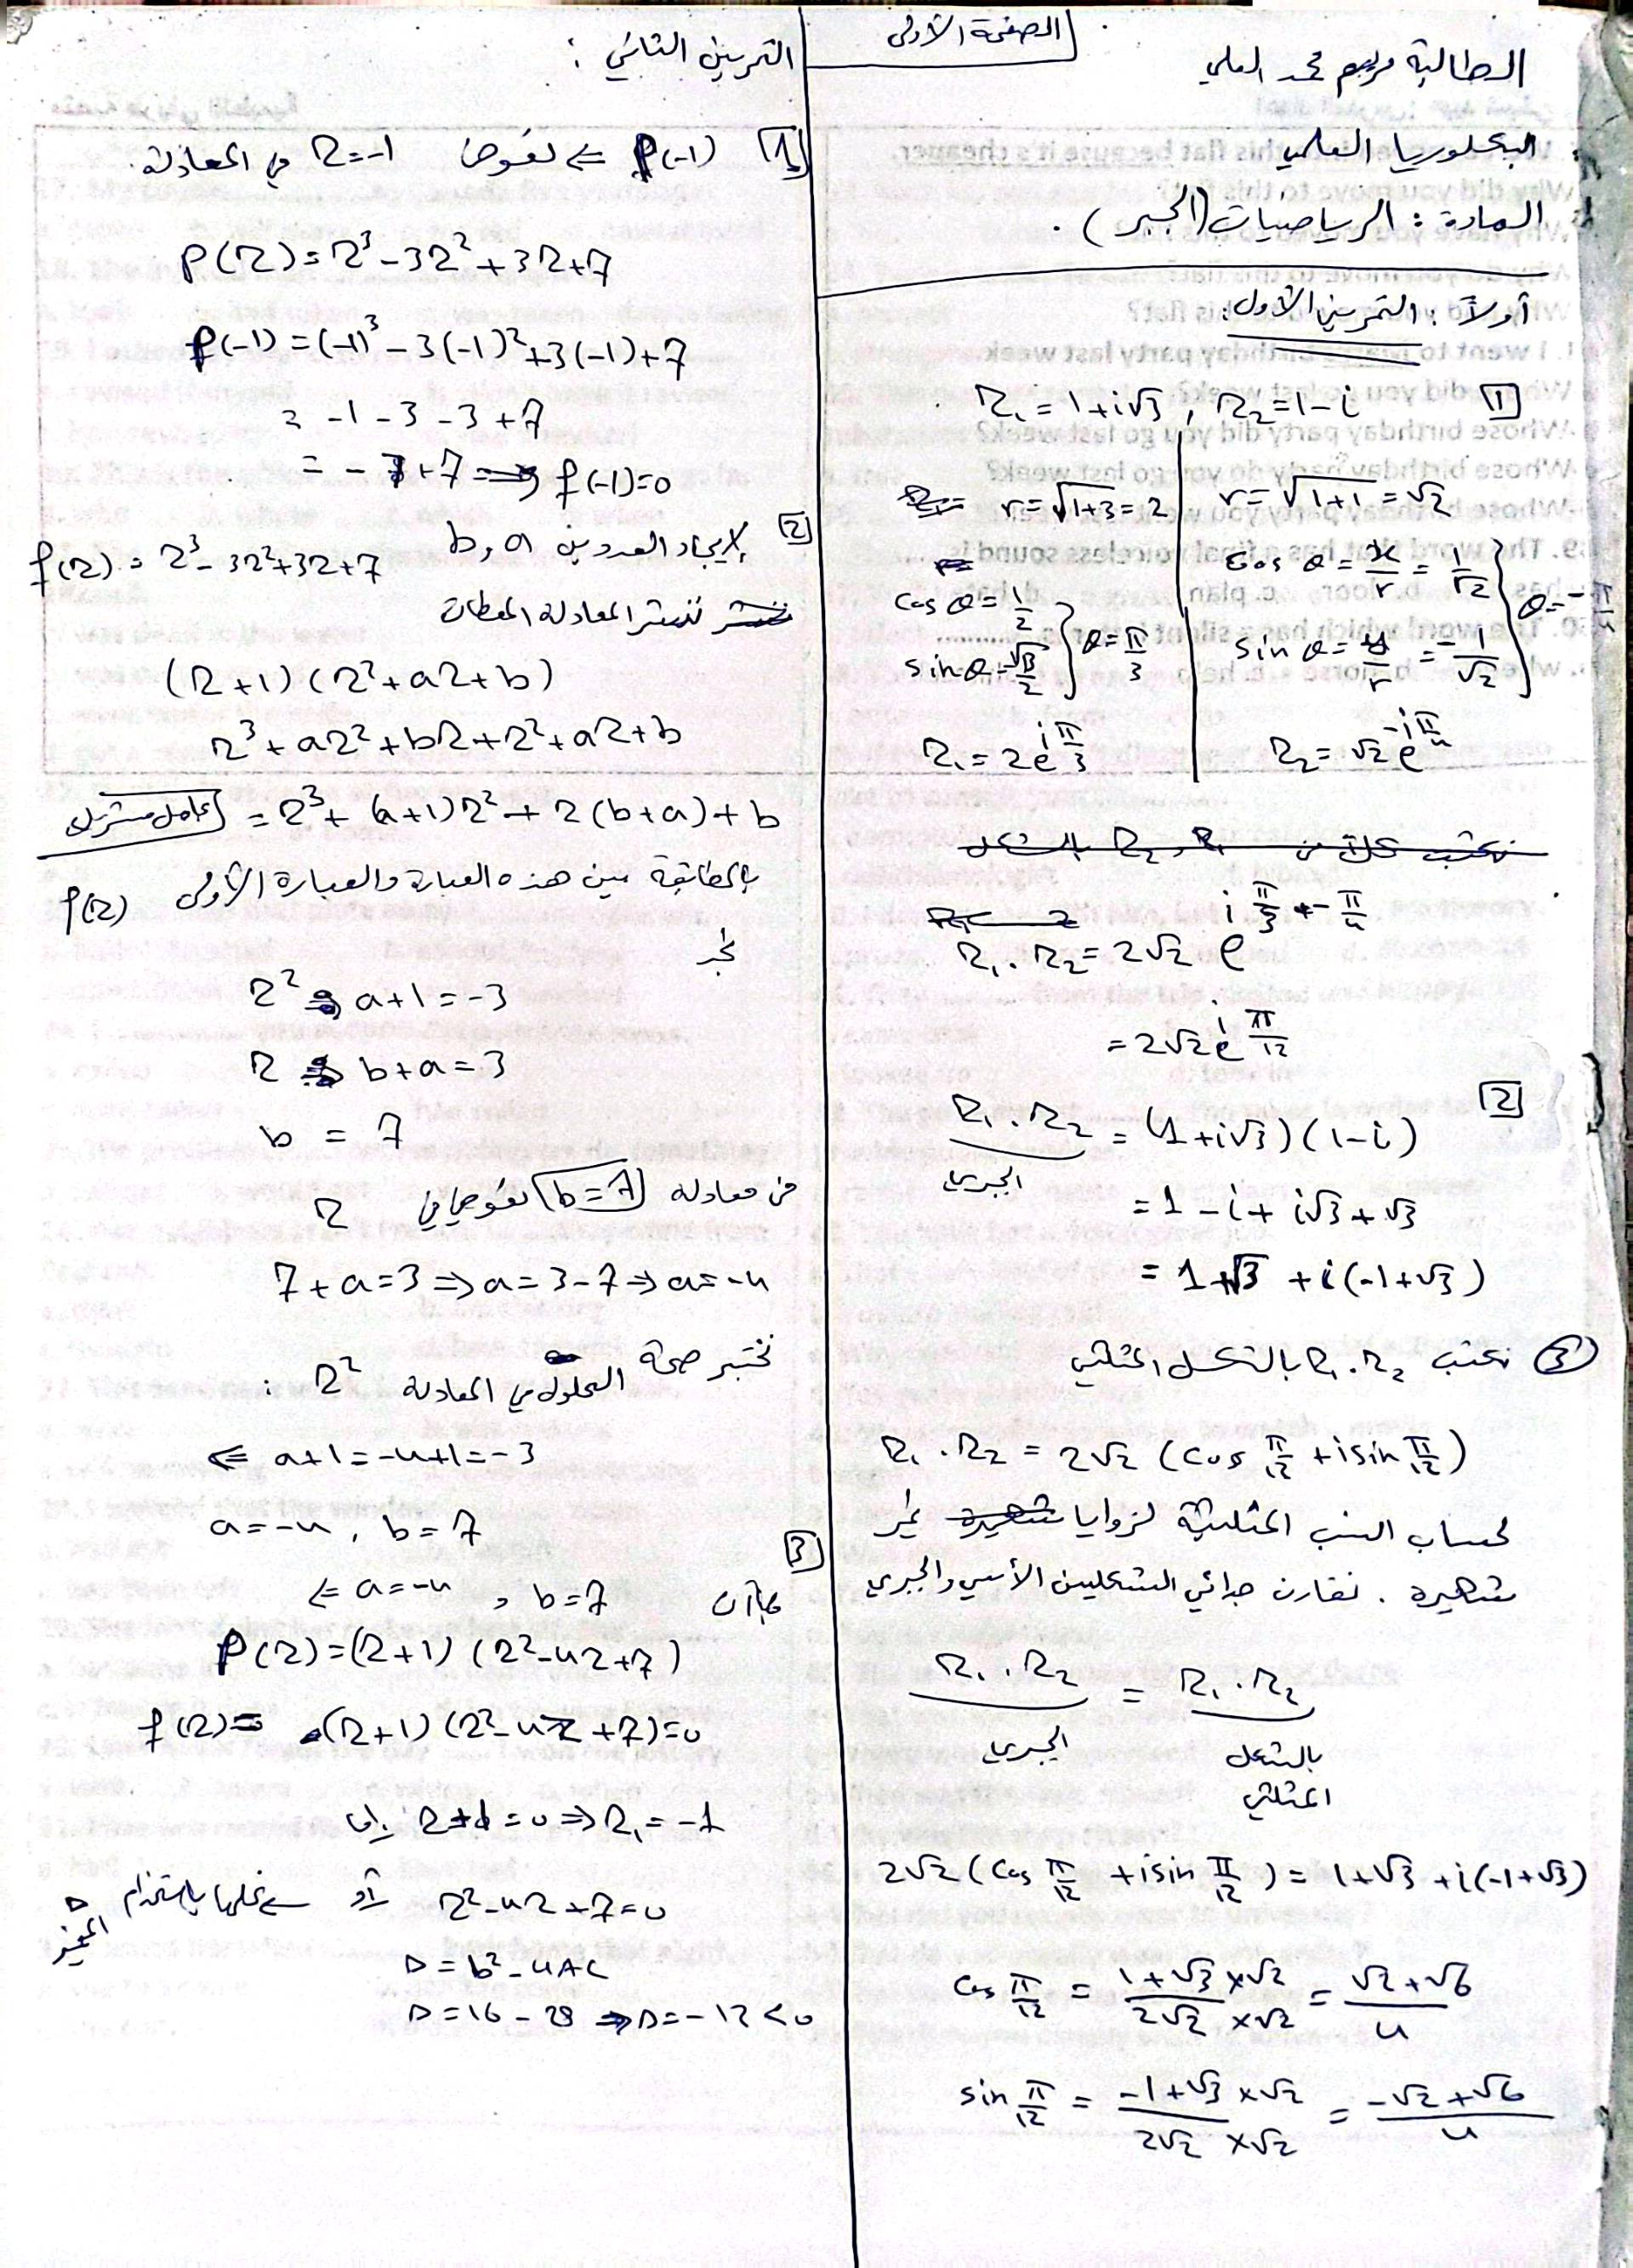 الصفحة الأولى
الطالبة مريم محمد العلي
البكلوريا العلمي
المادة : الرياضيات (الجبر) .
أولاً : التمرين الأول :
1 Z₁ = 1+i√3 , Z₂ = 1-i
r = √1+3 = 2
cos θ = 1/2
sin θ = √3/2
θ = π/3
Z₁ = 2e^(iπ/3)
r = √1+1 = √2
cos θ = x/r = 1/√2
sin θ = y/r = -1/√2
θ = -π/4
Z₂ = √2 e^(-iπ/4)
نكتب كلاً من Z₁ و Z₂ بالشكل
Z₁ . Z₂ = 2√2 e^(i π/3 + -π/4)
= 2√2 e^(i π/12)
2 Z₁ . Z₂ = (1+i√3)(1-i)
الجبري
= 1 - i + i√3 + √3
= 1+√3 + i(-1+√3)
3 نكتب Z₁ . Z₂ بالشكل المثلثي
Z₁ . Z₂ = 2√2 (cos π/12 + i sin π/12)
لحساب النسب المثلثية لزوايا شهيرة غير
شهيرة . نقارن جدائي الشكلين الأسي والجبري
Z₁ . Z₂ = Z₁ . Z₂
الجبري
بالشكل
المثلثي
2√2 (cos π/12 + i sin π/12) = 1+√3 + i(-1+√3)
cos π/12 = (1+√3 ×√2)/(2√2 ×√2) = (√2+√6)/4
sin π/12 = (-1+√3 ×√2)/(2√2 ×√2) = (-√2+√6)/4
التمرين الثاني :
1 P(-1) ⇐ نعوض Z=-1 في المعادلة .
P(Z) = Z³ - 3Z² + 3Z + 7
P(-1) = (-1)³ - 3(-1)² + 3(-1) + 7
= -1 - 3 - 3 + 7
= -7 + 7 ⇒ P(-1) = 0
2 لإيجاد العددين a و b
P(Z) = Z³ - 3Z² + 3Z + 7
ننشر المعادلة المعطات
(Z+1)(Z²+aZ+b)
Z³ + aZ² + bZ + Z² + aZ + b
= Z³ + (a+1)Z² + Z(b+a) + b عامل مشترك
بالمطابقة بين هذه العبارة والعبارة الأولى P(Z)
نجد
Z² ⇒ a+1 = -3
Z ⇒ b+a = 3
b = 7
من معادلة b=7 نعوض في Z
7+a = 3 ⇒ a = 3-7 ⇒ a = -4
نختبر صحة الحلول في المعادلة Z² :
⇐ a+1 = -4+1 = -3
a = -4 , b = 7
3 بما أن a = -4 , b = 7 ⇐
P(Z) = (Z+1)(Z²-4Z+7)
P(Z) = (Z+1)(Z²-4Z+7) = 0
إما Z+1 = 0 ⇒ Z₁ = -1
أو Z²-4Z+7 = 0 نحلها باستخدام المميز Δ
Δ = b² - 4AC
Δ = 16 - 28 ⇒ Δ = -12 < 0